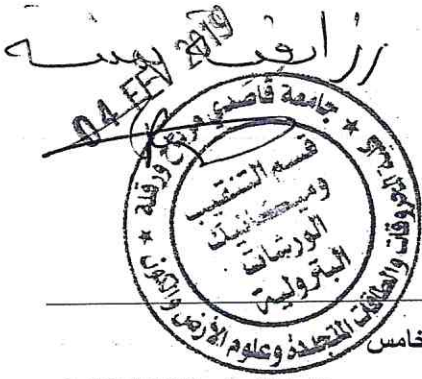 04 FEV 2019
جامعة قاصدي مرباح ورقلة
قسم التنقيب
وميكانيك
الورشات
البترولية
المحروقات والطاقات المتجددة وعلوم الأرض والكون
خامس